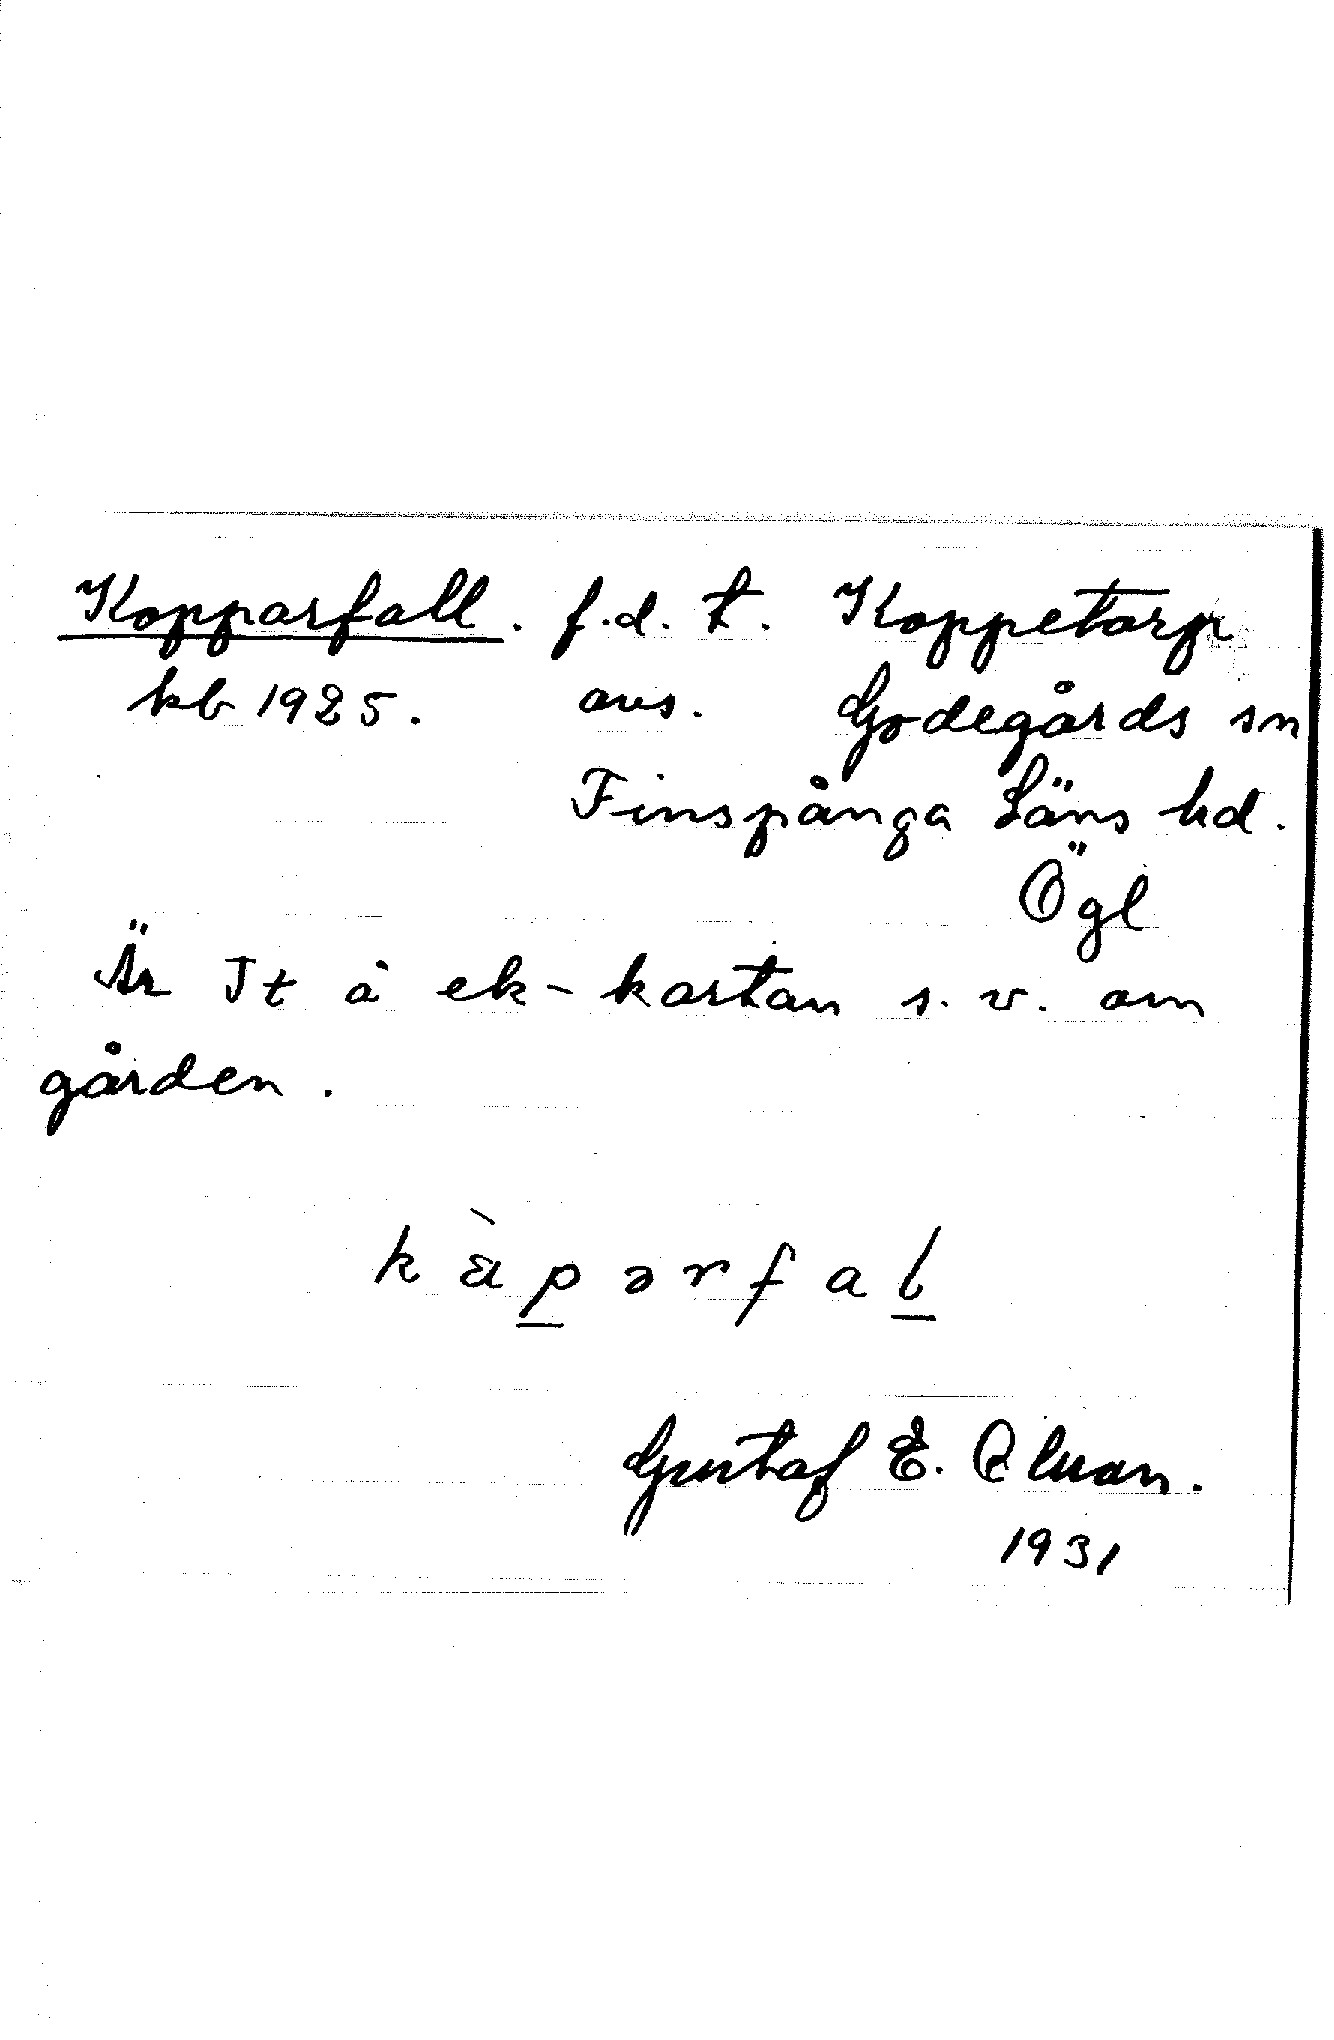 Kopparfall. f.d. t. Koppetorp
kb 1925. avs. Godegårds sn
Finspånga Läns hd.
Ögl
Är Jt å ek-kartan s.v. om
gården.
Gustaf E.
1931